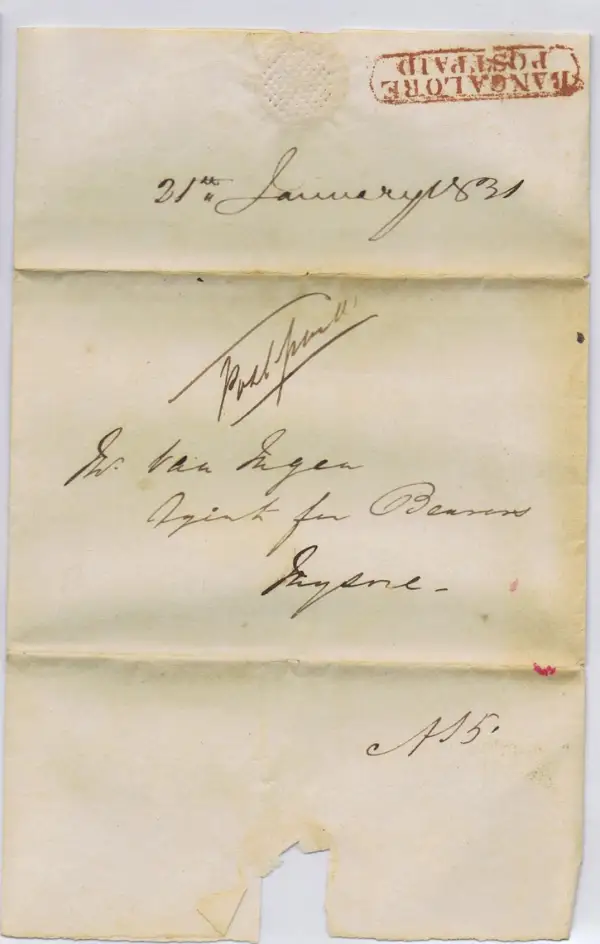 BANGALORE
POST PAID
21st January 1831
Post paid
Mr. Van Ingen
Agent for Bearers
Mysore -
A 15.